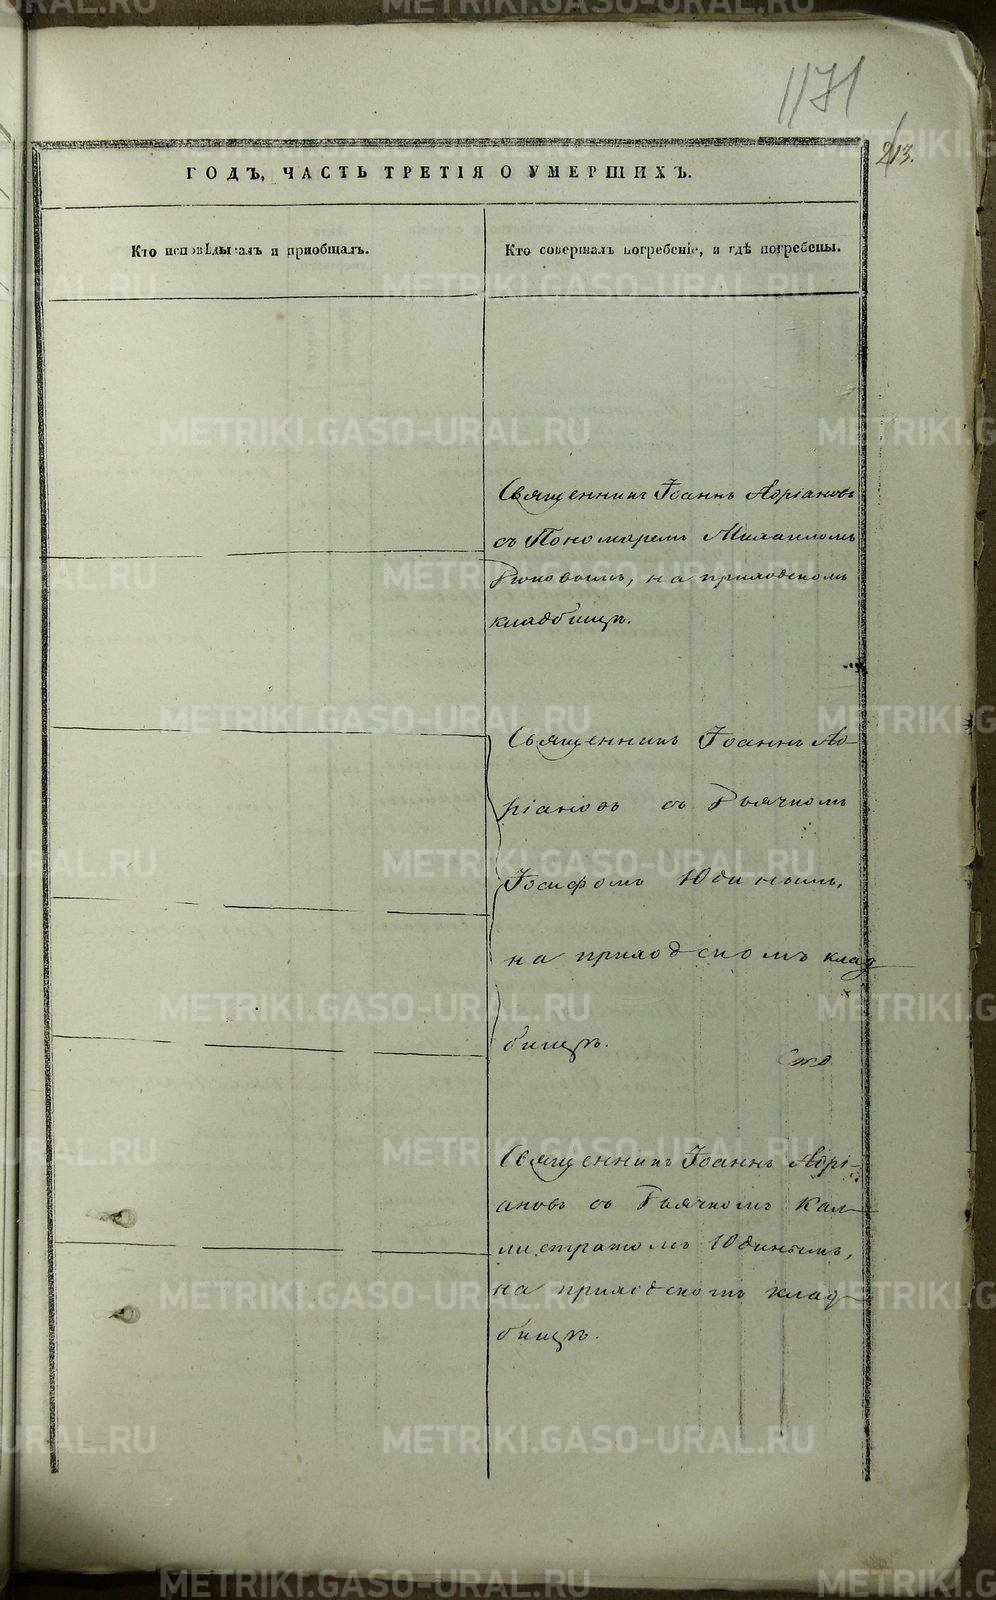 1171
213.
ГОДЪ, ЧАСТЬ ТРЕТІЯ О УМЕРШИХЪ.
Кто исповѣдывалъ и пріобщалъ.
Кто совершалъ погребеніе, и гдѣ погребены.
Священникъ Іоаннъ Адріановъ
съ Пономаремъ Михаиломъ
на приходскомъ
кладбищѣ.
Священникъ Іоаннъ Ад-
ріановъ съ Дьячкомъ
Іосифомъ Юдинымъ,
на приходскомъ клад
бищѣ.
Священникъ Іоаннъ Адрі-
ановъ съ Дьячкомъ Кал-
листратомъ Юдинымъ,
на приходскомъ клад-
бищѣ.
METRIKI.GASO-URAL.RU